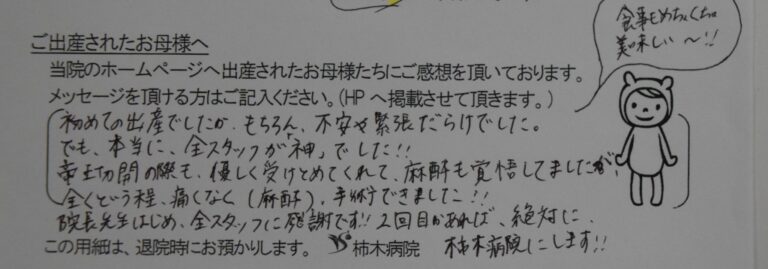 ご出産されたお母様へ
当院のホームページへ出産されたお母様たちにご感想を頂いております。
メッセージを頂ける方はご記入ください。(HPへ掲載させて頂きます。)
初めての出産でしたが、もちろん、不安や緊張だらけでした。
でも、本当に、全スタッフが「神」でした!!
帝王切開の際も、優しく受けとめてくれて、麻酔も覚悟してましたが、
全くという程、痛くなく(麻酔)、手術できました!!
院長先生はじめ、全スタッフに感謝です!!2回目があれば、絶対に、
柿木病院にします!!
この用紙は、退院時にお預かりします。 柿木病院
食事もめちゃくちゃ
美味しい〜!!